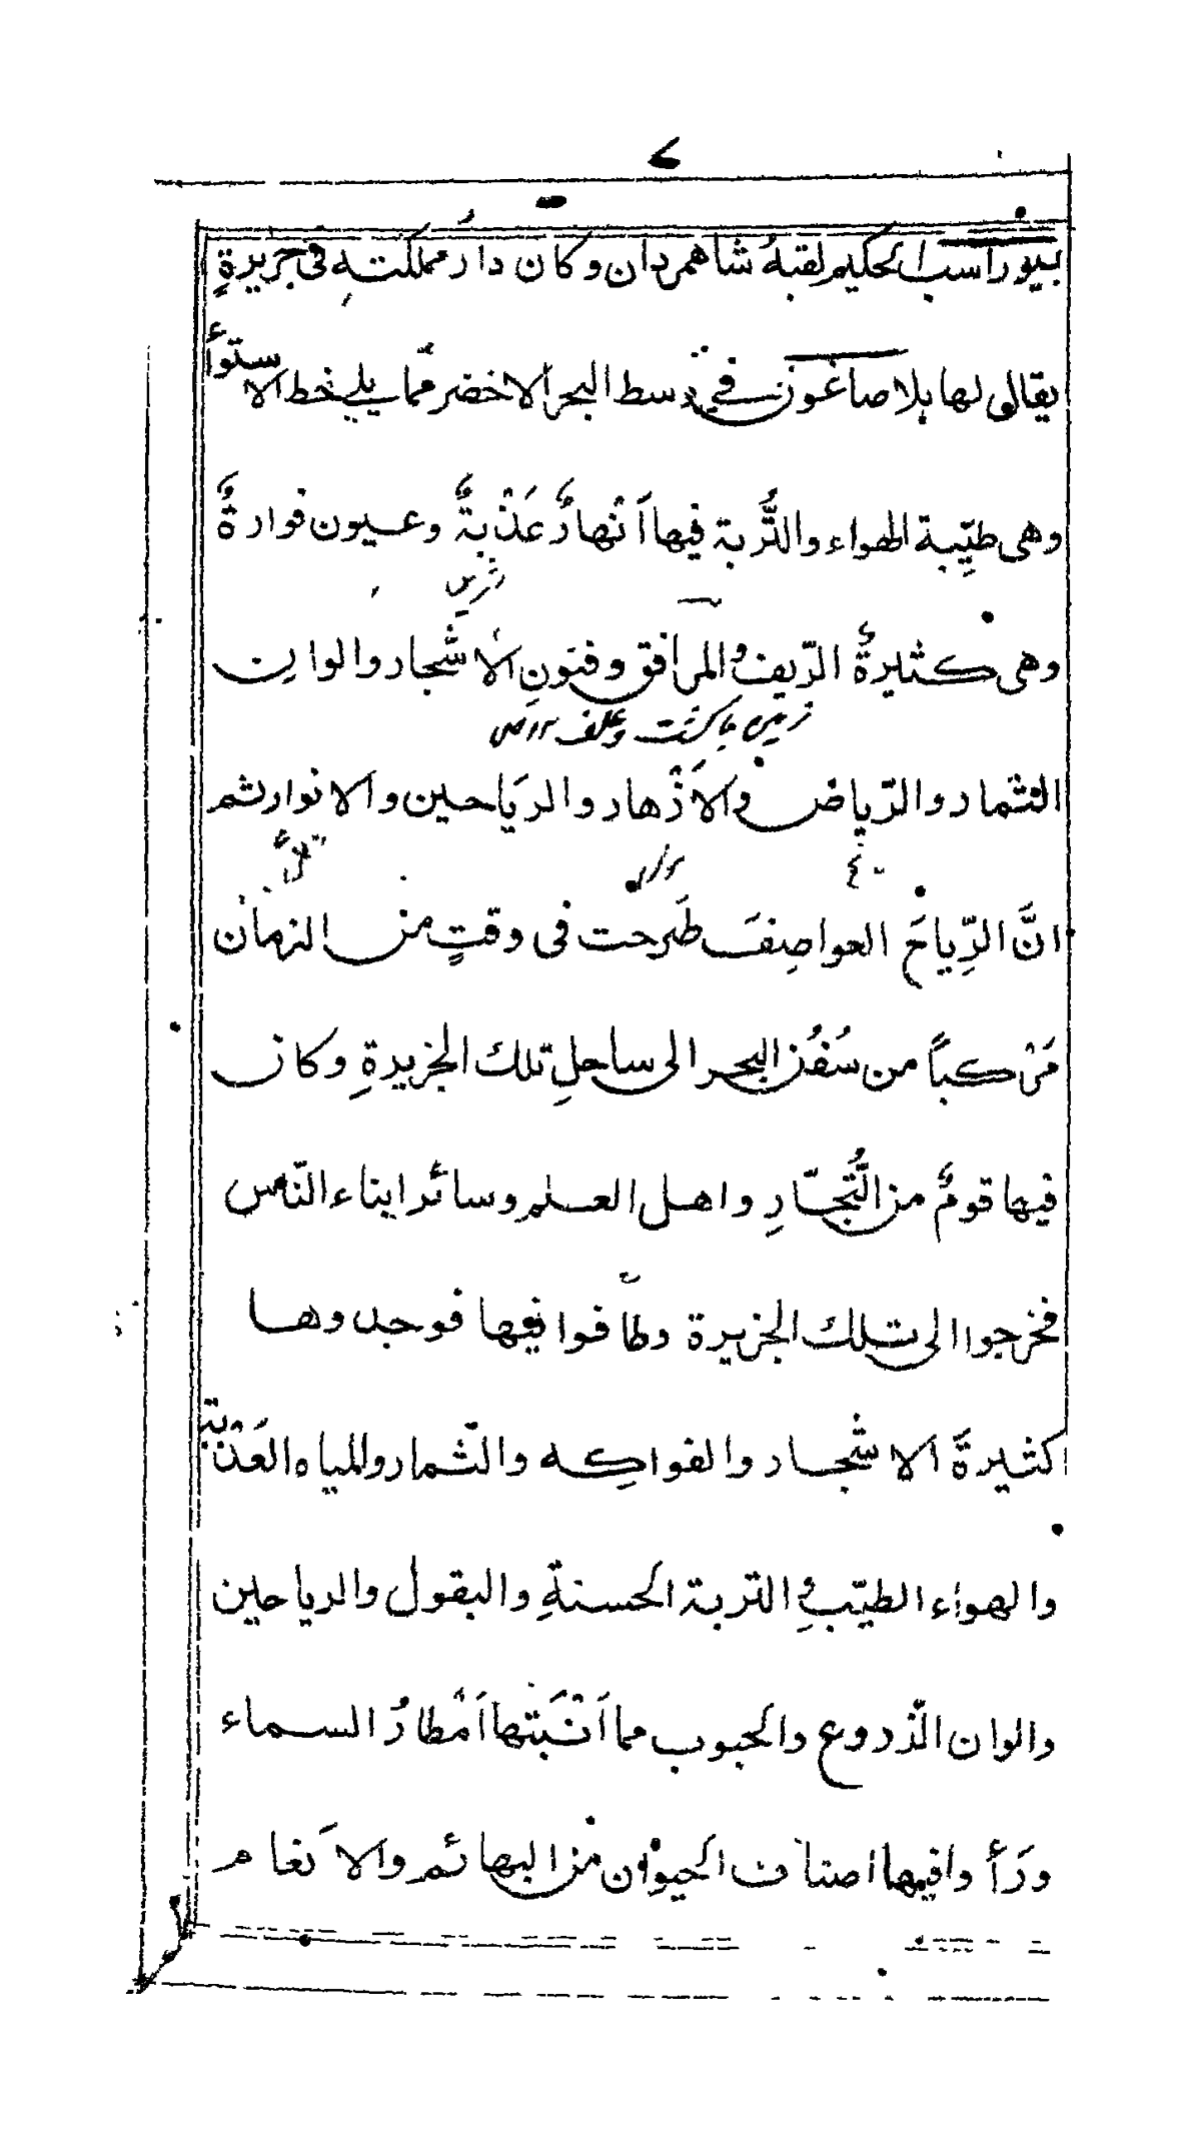 بيوراسب الحكيم لقبهُ شاه مردان و كان دار مملكتهِ فى جزيرةٍ
يقال لها بلا صاغون فى وسط البحر الاخضر ممّا يلى خط الاستوأ
وهى طيّبة الهواء والتُّربة فيها اَنْهارٌ عَذْبةٌ و عيون فوارةٌ
وهى كثيرةُ الرّيف والمرافق و فنونِ الاشجار والوان
زمين باكشت وعلف
الثمار والرّياض والاَزْهار والريَاحين والانوار ثم
انَّ الرِّياحَ العواصِفَ طَرحت فى وقتٍ من الزمان
مَرْكباً من سُفُن البحر الى ساحلِ تلك الجزيرةِ وكان
فيها قومٌ من التُّجّارِ واهل العلم وسائر ابناء النّاس
فخرجوا الى تلك الجزيرة وطافوا فيها فوجدوها
كثيرةَ الاشجار والفواكِه والثّمار والمياه العَذْبة
والهواء الطيّب والتربة الحسنةِ والبقول والرياحين
والوان الزّروع والحبوب مما اَنْبَتها اَمْطارُ السماء
ورَأوا فيها اصناف الحيوان من البهائم والاَنعام